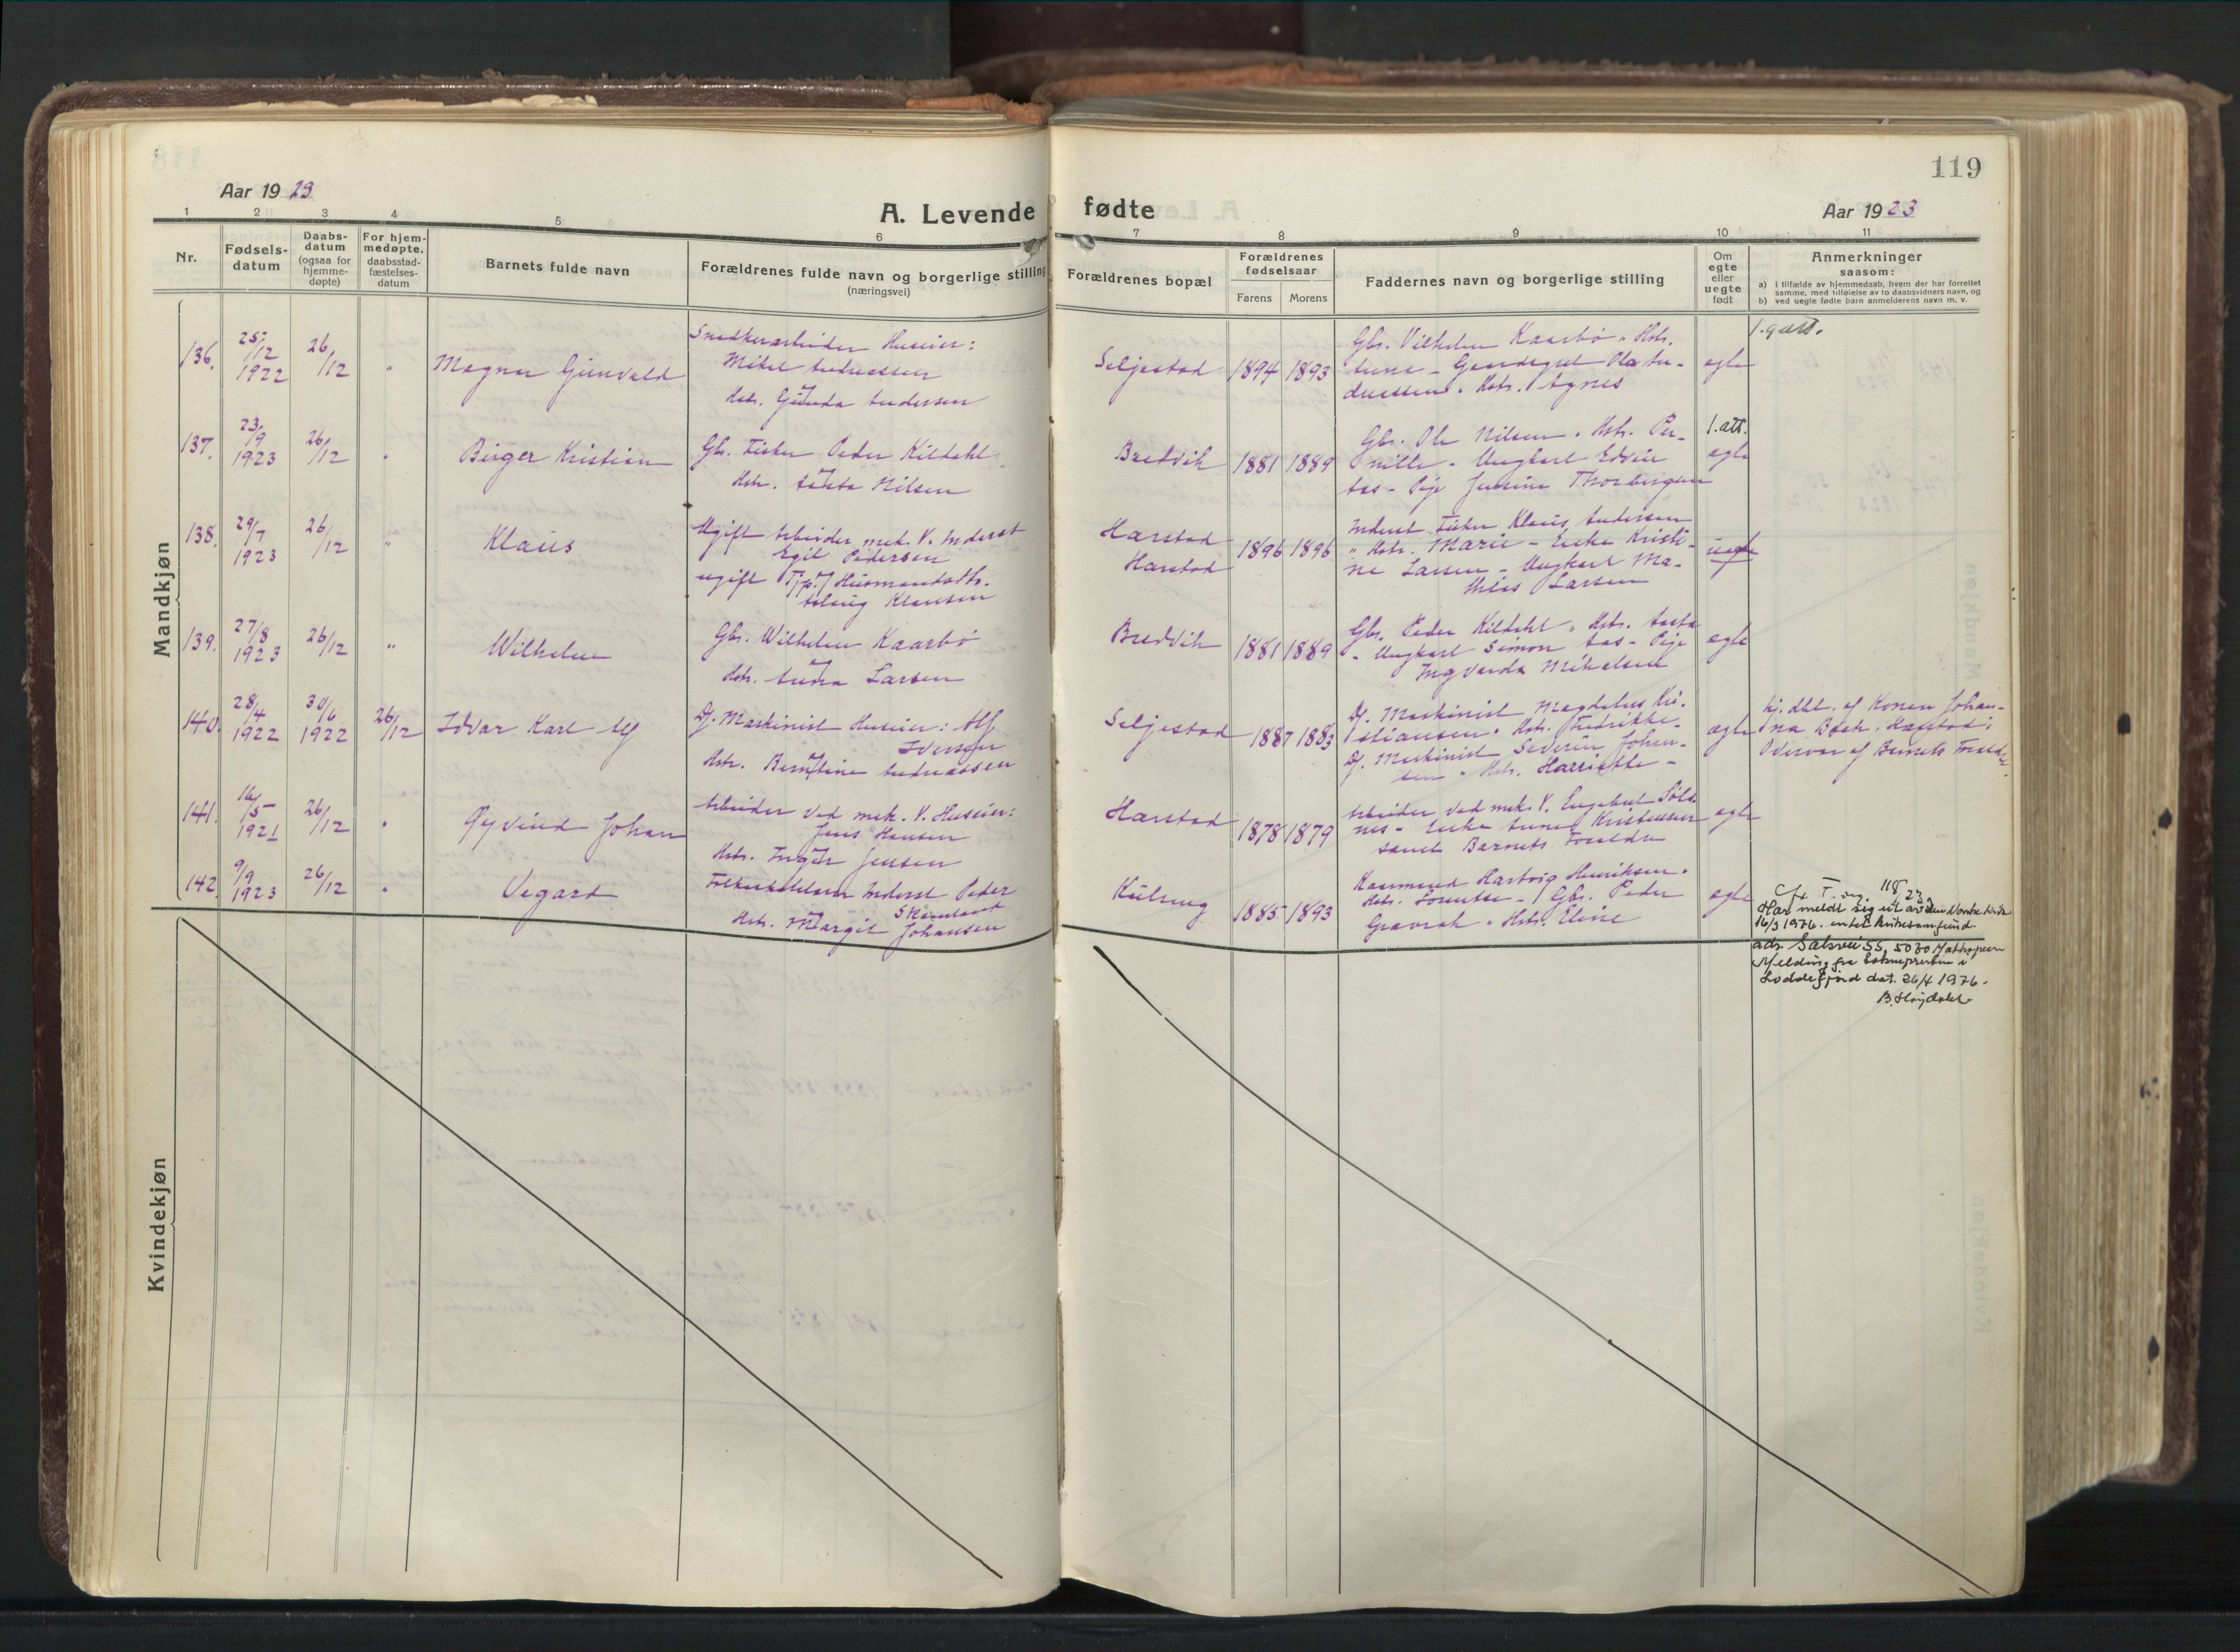 119
Aar 1923
A. Levende
fødte
Aar 1923
1 2 3 4 5 6 7 8 9 10 11
Nr.
Fødsels-
datum
Daabs-
datum
(ogsaa for
hjemme-
døpte)
For hjem-
medøpte,
daabsstad-
fæstelses-
datum
Barnets fulde navn
Forældrenes fulde navn og borgerlige stilling
(næringsvei)
Forældrenes bopæl
Forældrenes
fødselsaar
Farens Morens
Faddernes navn og borgerlige stilling
Om
egte
eller
uegte
født
Anmerkninger
saasom:
a) i tilfælde av hjemmedaab, hvem der har forrettet
samme, med tilføielse av to daabsvidners navn, og
b) ved uegte fødte barn anmelderens navn m. v.
Mandkjøn
136. 25/12 1922 26/12 " Magnar Gunvald
Snedkerarbeider Huseier:
Mikal Andreassen
Hstr. Gunda Andersen
Seljestad 1894 1893
Gbr. Vilhelm Kaarbö " Hstr.
Anna - Gaardsgut Ola An-
dreassen " Hstr. Agnes
egte
137. 23/9 1923 26/12 " Birger Kristian
Gbr. Fisker Peder Kildahl
Hstr. Aasta Nilsen
Bredvik 1881 1889
Gbr. Ole Nilsen " Hstr. Per-
nille - Ungkarl Edvin
Aas - Pige Jensine Thorbergsen
1. att.
egte
138. 29/7 1923 26/12 " Klaus
Ugift Arbeider mek. V. Inderst
Egil Pedersen
ugift Husmandsdtr.
Solveig Klausen
Harstad
Harstad
1896 1896
Inderst Fisker Klaus Andersen
" Hstr. Marie - Enke Kristi-
ne Larsen - Ungkarl Ma-
thias Larsen
uegte
139. 27/8 1923 26/12 " Wilhelm
Gbr. Wilhelm Kaarbö
Hstr. Anna Larsen
Bredvik 1881 1889
Gbr. Peder Kildahl " Hstr. Aasta
- Ungkarl Simon Aas - Pige
Ingvarda Mikalsen
egte
140. 28/4 1922 30/6 1922 26/12 Idvar Karl Alf
Dj. Maskinist Huseier: Alf
Iversen
Hstr. Berntine Andreassen
Seljestad 1887 1883
Dj. Maskinist Magdalus Kri-
stiansen " Hstr. Fredrikke -
Dj. Maskinist Severin Johan-
sen " Hstr. Harriette -
egte
hj. dbt. af Konen Johan-
na Bock, Harstad i
Overvær af Barnets Foreldre.
141. 16/5 1921 26/12 " Øyvind Johan
Arbeider ved mek. V. Huseier:
Jens Hansen
Hstr. Inger Jensen
Harstad 1878 1879
Arbeider ved mek. V. Engebret Sölb-
nes - Enke Anna Kristensen
samt Barnets Foreldre
egte
142. 9/9 1923 26/12 " Vegard
Inderst Peder
Hstr. Margit Johansen
1885 1893
Kaarmand Hartvig Henriksen "
Hstr. - Gbr. Peder
Gravrok " Hstr. Eline
egte
Cfr. 118/23
Har meldt seg ut av den Norske kirke
16/3 1976. annet kirkesamfund.
adr. 55, 5030
Melding fra Soknepresten i
Loddefjord dat. 26/4 1976.
B. Høydahl
Kvindekjøn